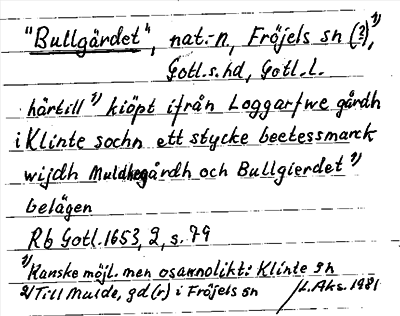 "Bullgärdet", nat.-n, Fröjels sn (?)¹⁾,
Gotl.s.hd, Gotl.l.
härtill ²⁾ kiöpt ifrån Loggarfwe gårdh
i Klinte sochn ett stycke beetessmarck
wijdh Muldhegårdh och Bullgierdet ¹⁾
belägen
Rb Gotl.1653, 2, s. 79
¹⁾ Kanske möjl. men osannolikt: Klinte sn
²⁾ Till Mulde, gd (r) i Fröjels sn /L.Aks. 1981